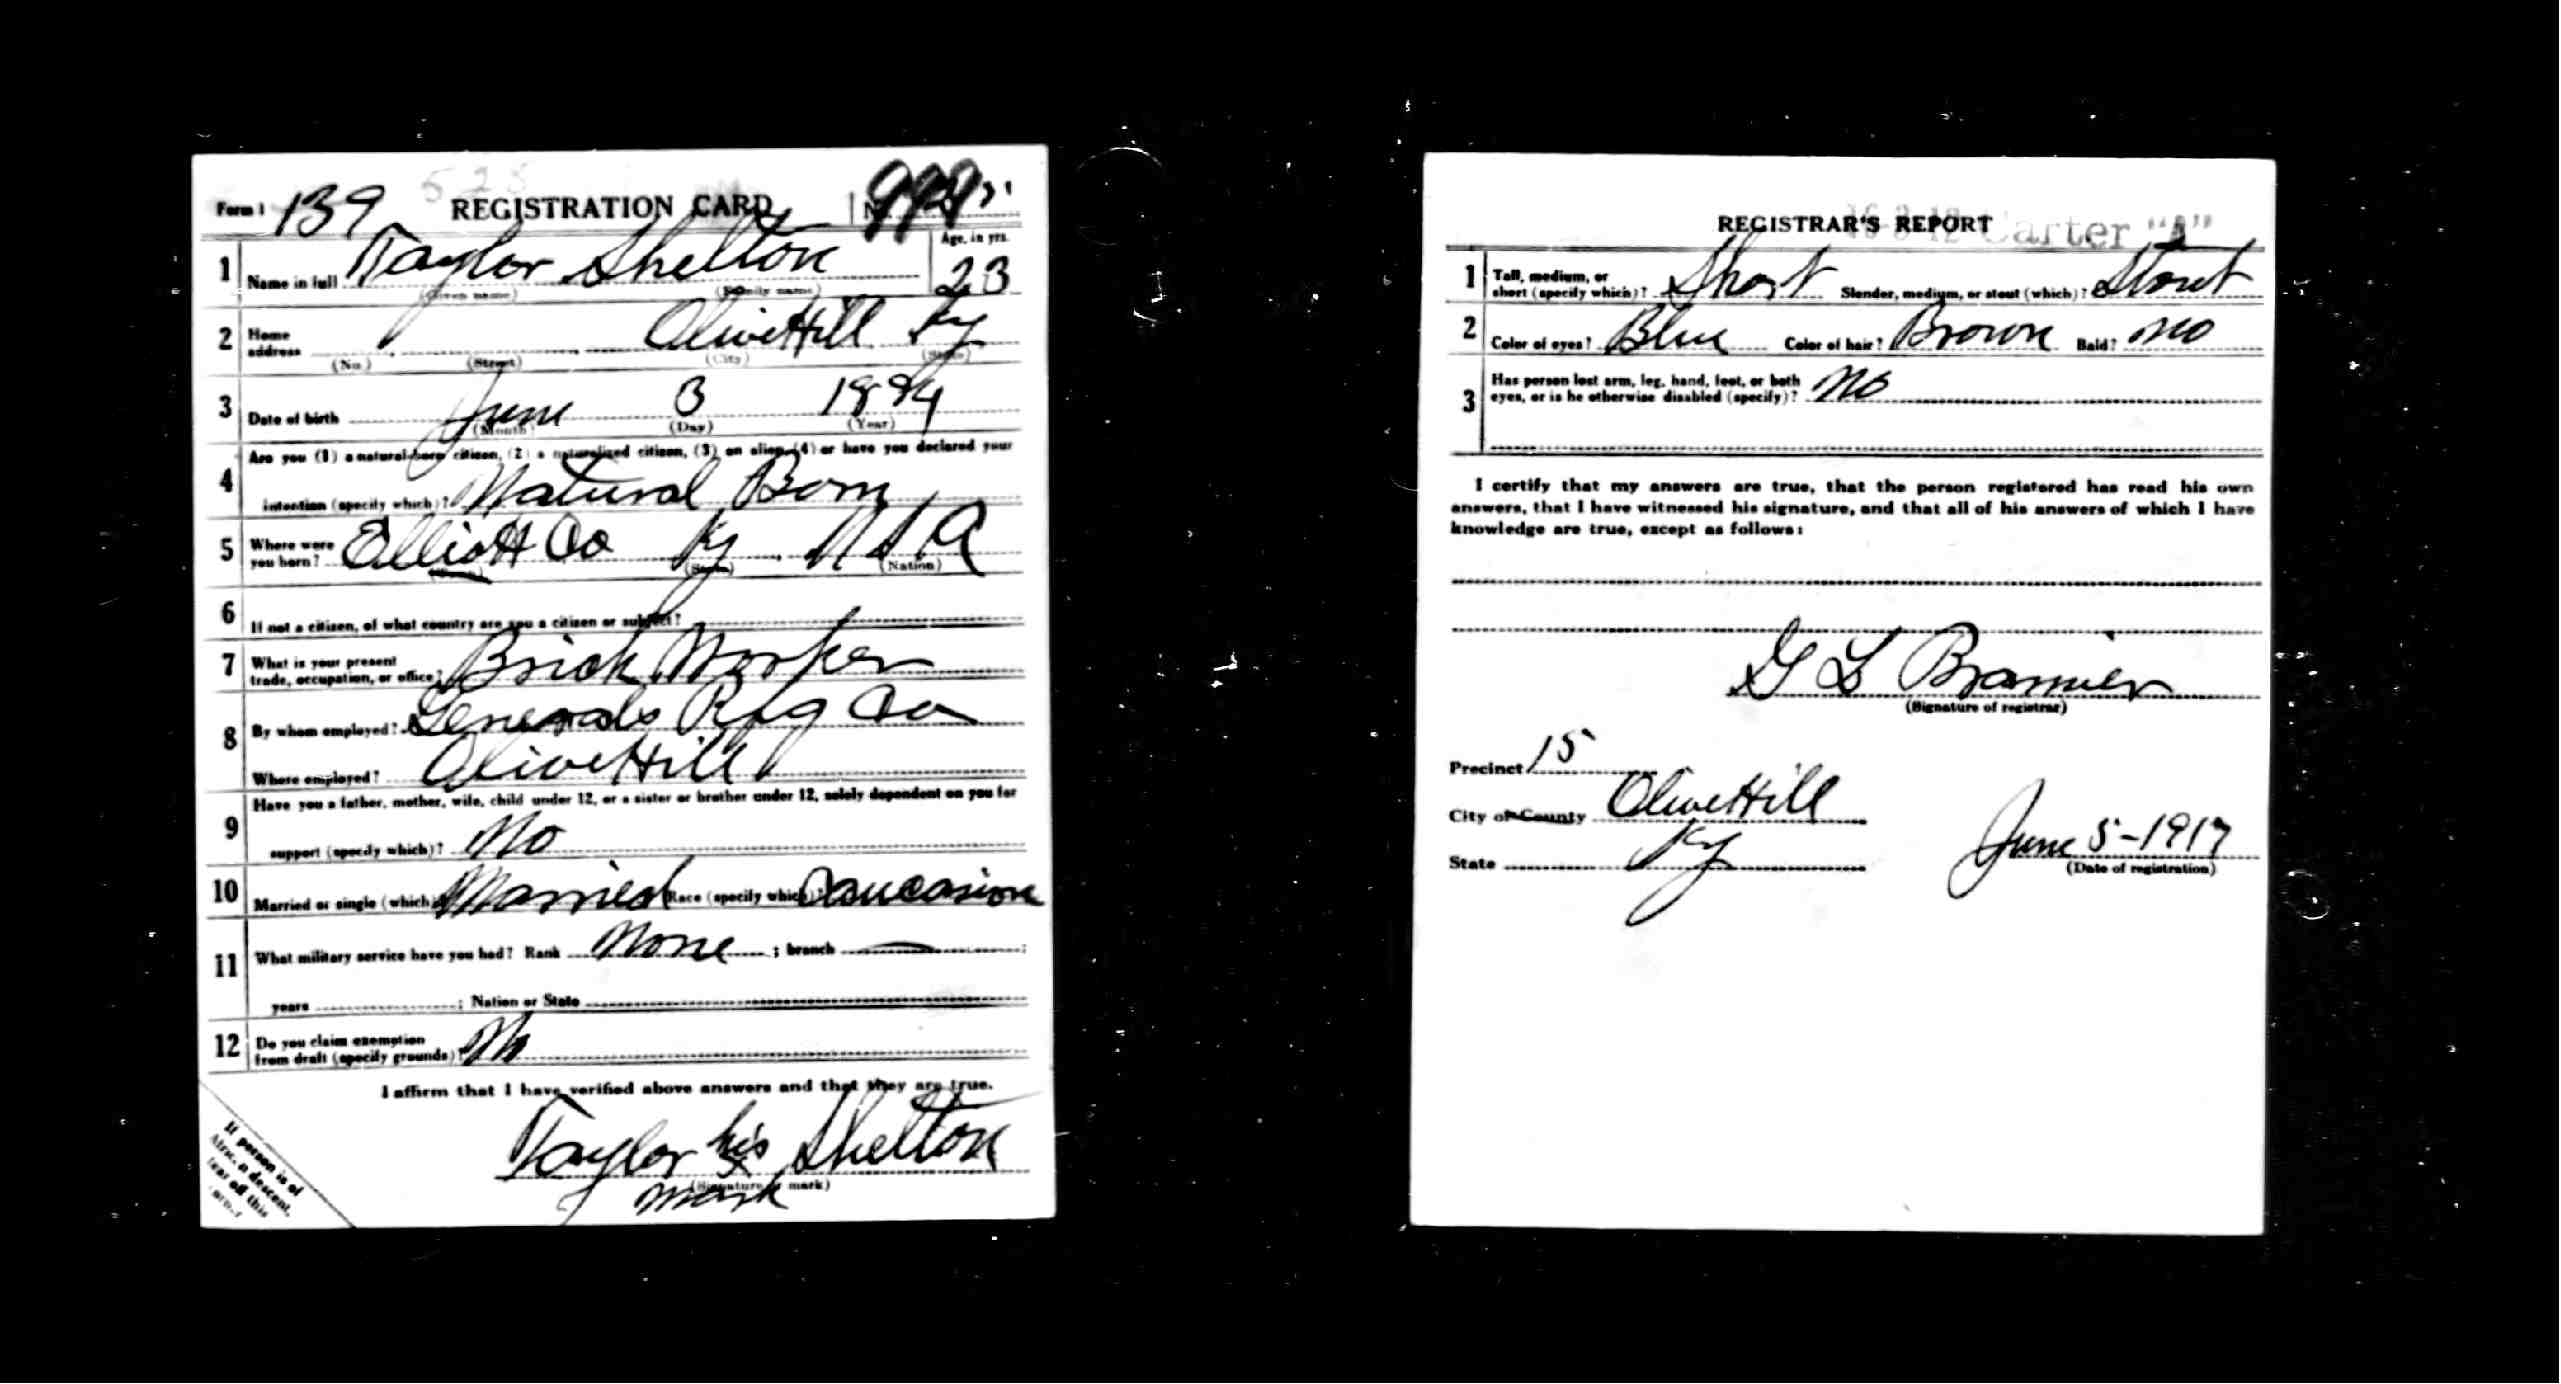 Form 1 139 REGISTRATION CARD
1 Name in full Taylor Shelton Age, in yrs. 23
(Given name) (Family name)
2 Home address Olive Hill Ky
(No.) (Street) (City) (State)
3 Date of birth June 3 1894
(Month) (Day) (Year)
Are you (1) a natural-born citizen, (2) a naturalized citizen, (3) an alien, (4) or have you declared your
4 intention (specify which)? Natural Born
5 Where were you born? Elliott Co Ky USA
(State) (Nation)
6 If not a citizen, of what country are you a citizen or subject?
7 What is your present trade, occupation, or office? Brick Worker
8 By whom employed? Generals Rfg Co
Where employed? Olive Hill
Have you a father, mother, wife, child under 12, or a sister or brother under 12, solely dependent on you for
9 support (specify which)? No
10 Married or single (which)? Married Race (specify which)? Caucasion
11 What military service have you had? Rank None ; branch
years ; Nation or State
12 Do you claim exemption from draft (specify grounds)? No
I affirm that I have verified above answers and that they are true.
Taylor his x Shelton
(Signature mark)
mark
If person is of
descent,
off this
REGISTRAR'S REPORT
Carter "A"
1 Tall, medium, or short (specify which)? Short Slender, medium, or stout (which)? Stout
2 Color of eyes? Blue Color of hair? Brown Bald? No
3 Has person lost arm, leg, hand, foot, or both eyes, or is he otherwise disabled (specify)? No
I certify that my answers are true, that the person registered has read his own
answers, that I have witnessed his signature, and that all of his answers of which I have
knowledge are true, except as follows:
G L
(Signature of registrar)
Precinct 15
City or County Olive Hill
State Ky June 5-1917
(Date of registration)